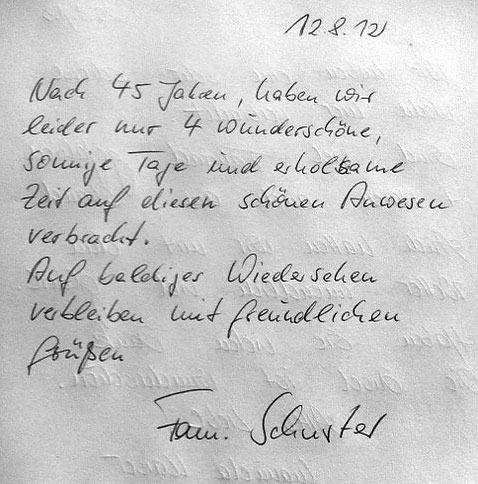 12.8.12
Nach 45 Jahren, haben wir
leider nur 4 wunderschöne,
sonnige Tage und erholsame
Zeit auf diesen schönen Anwesen
verbracht.
Auf baldiges Wiedersehen
verbleiben mit freundlichen
Grüßen
Fam. Schuster